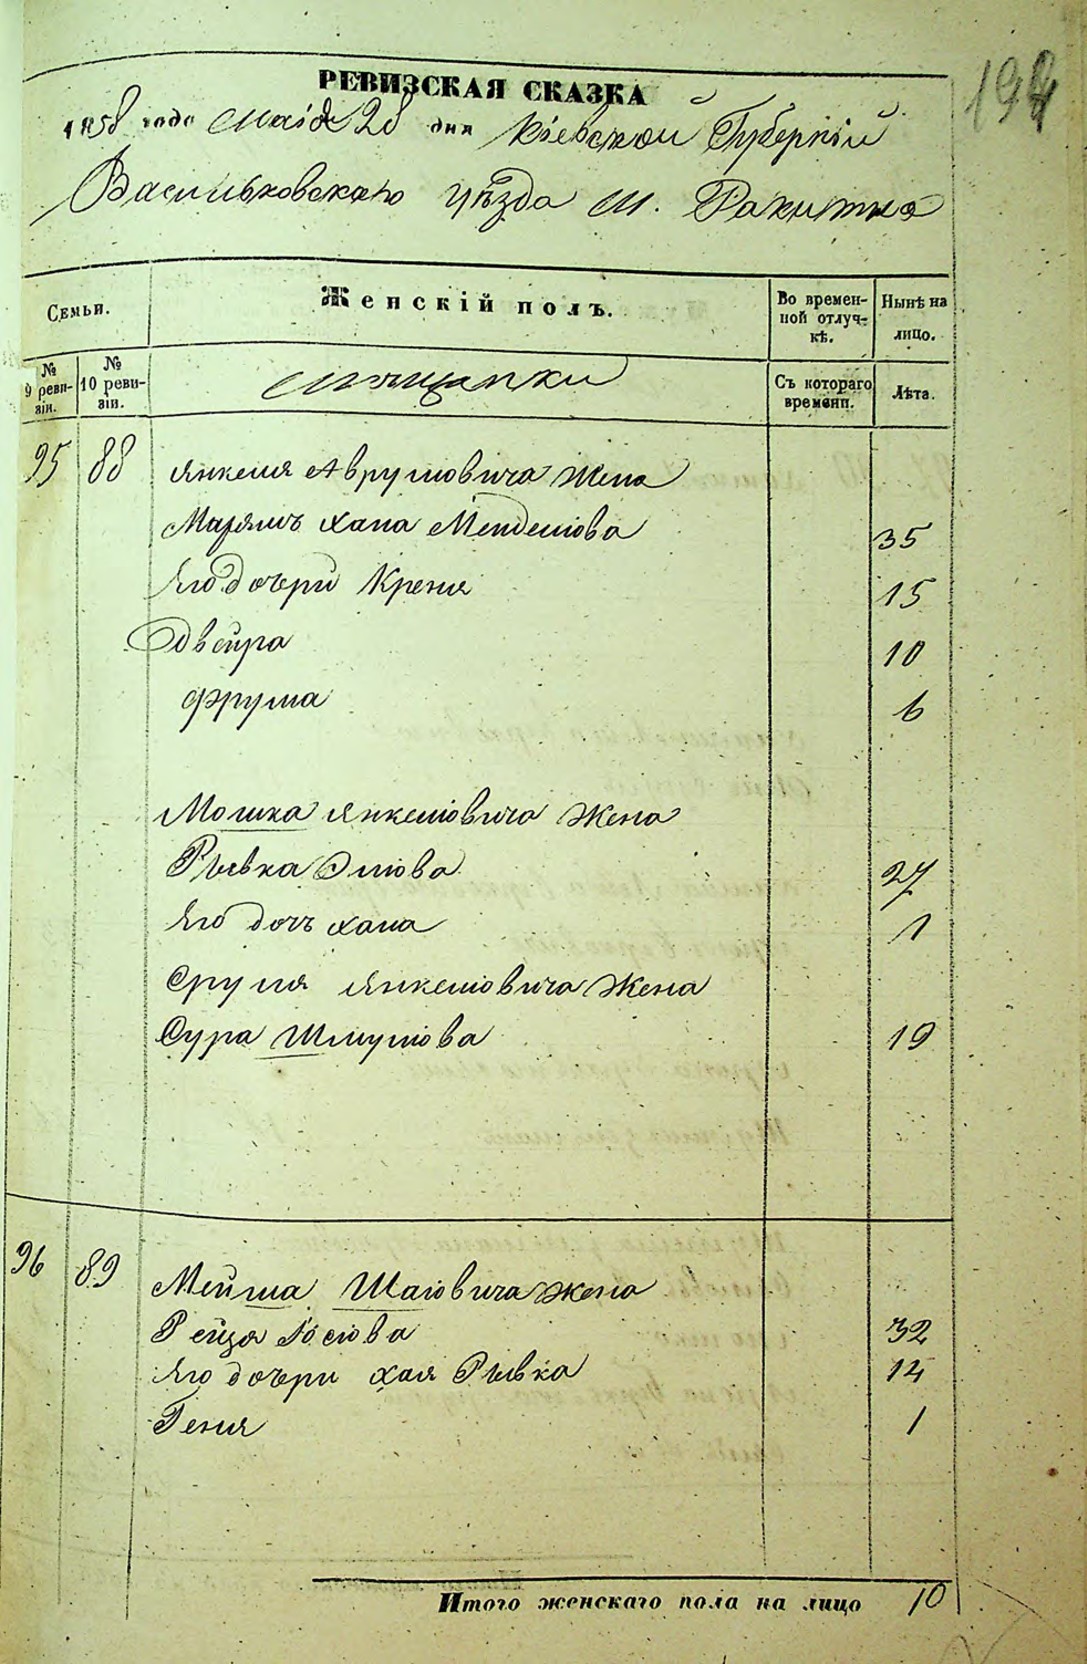 194
РЕВИЗСКАЯ СКАЗКА
1858 года Маія 28 дня Кіевской Губерніи
Васильковскаго уѣзда м. Ракитна
Семьи.
Женскій полъ.
Во времен-
ной отлуч-
кѣ.
Нынѣ на
лицо.
№
9 реви-
зіи.
№
10 реви-
зіи.
Мѣщанки
Съ котораго
времени.
Лѣта.
95 88 Янкеля Аврумовича жена
Марямъ Хана Менделіова 35
Его дочери Креня 15
Двейра 10
Фрума 6
Мошка Янкеліовича жена
Рывка Эліова 27
Его дочь Хана 1
Сруля Янкеліовича жена
Сура Шмуліова 19
96 89 Мейша Шаіовича жена
Рейзя Іосіова 32
Его дочери Хая Рывка 14
Геня 1
Итого женскаго пола на лицо 10